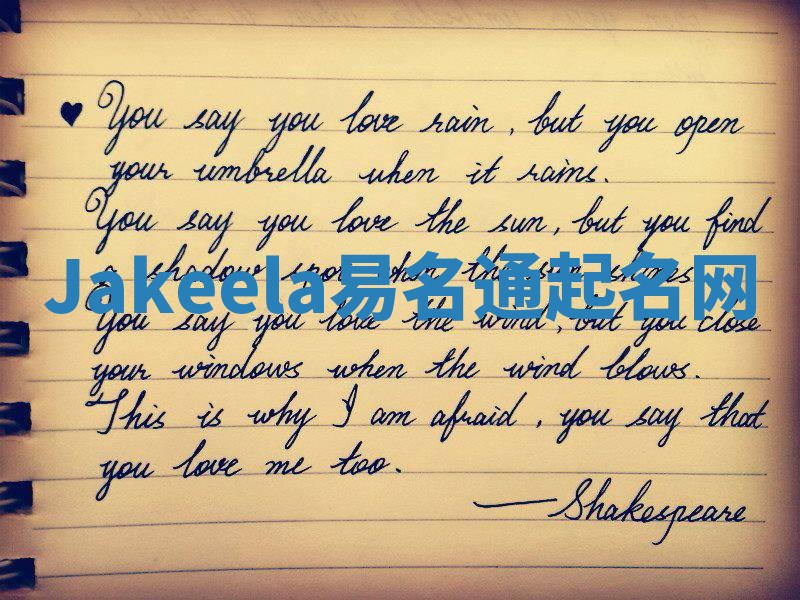 ♥ You say you love rain, but you open
your umbrella when it rains.
You say you love the sun, but you find
a shadow spot when the sun shines.
Jakeela易名通起名网
You say you love the wind, but you close
your windows when the wind blows.
This is why I am afraid, you say that
you love me too.
—Shakespeare